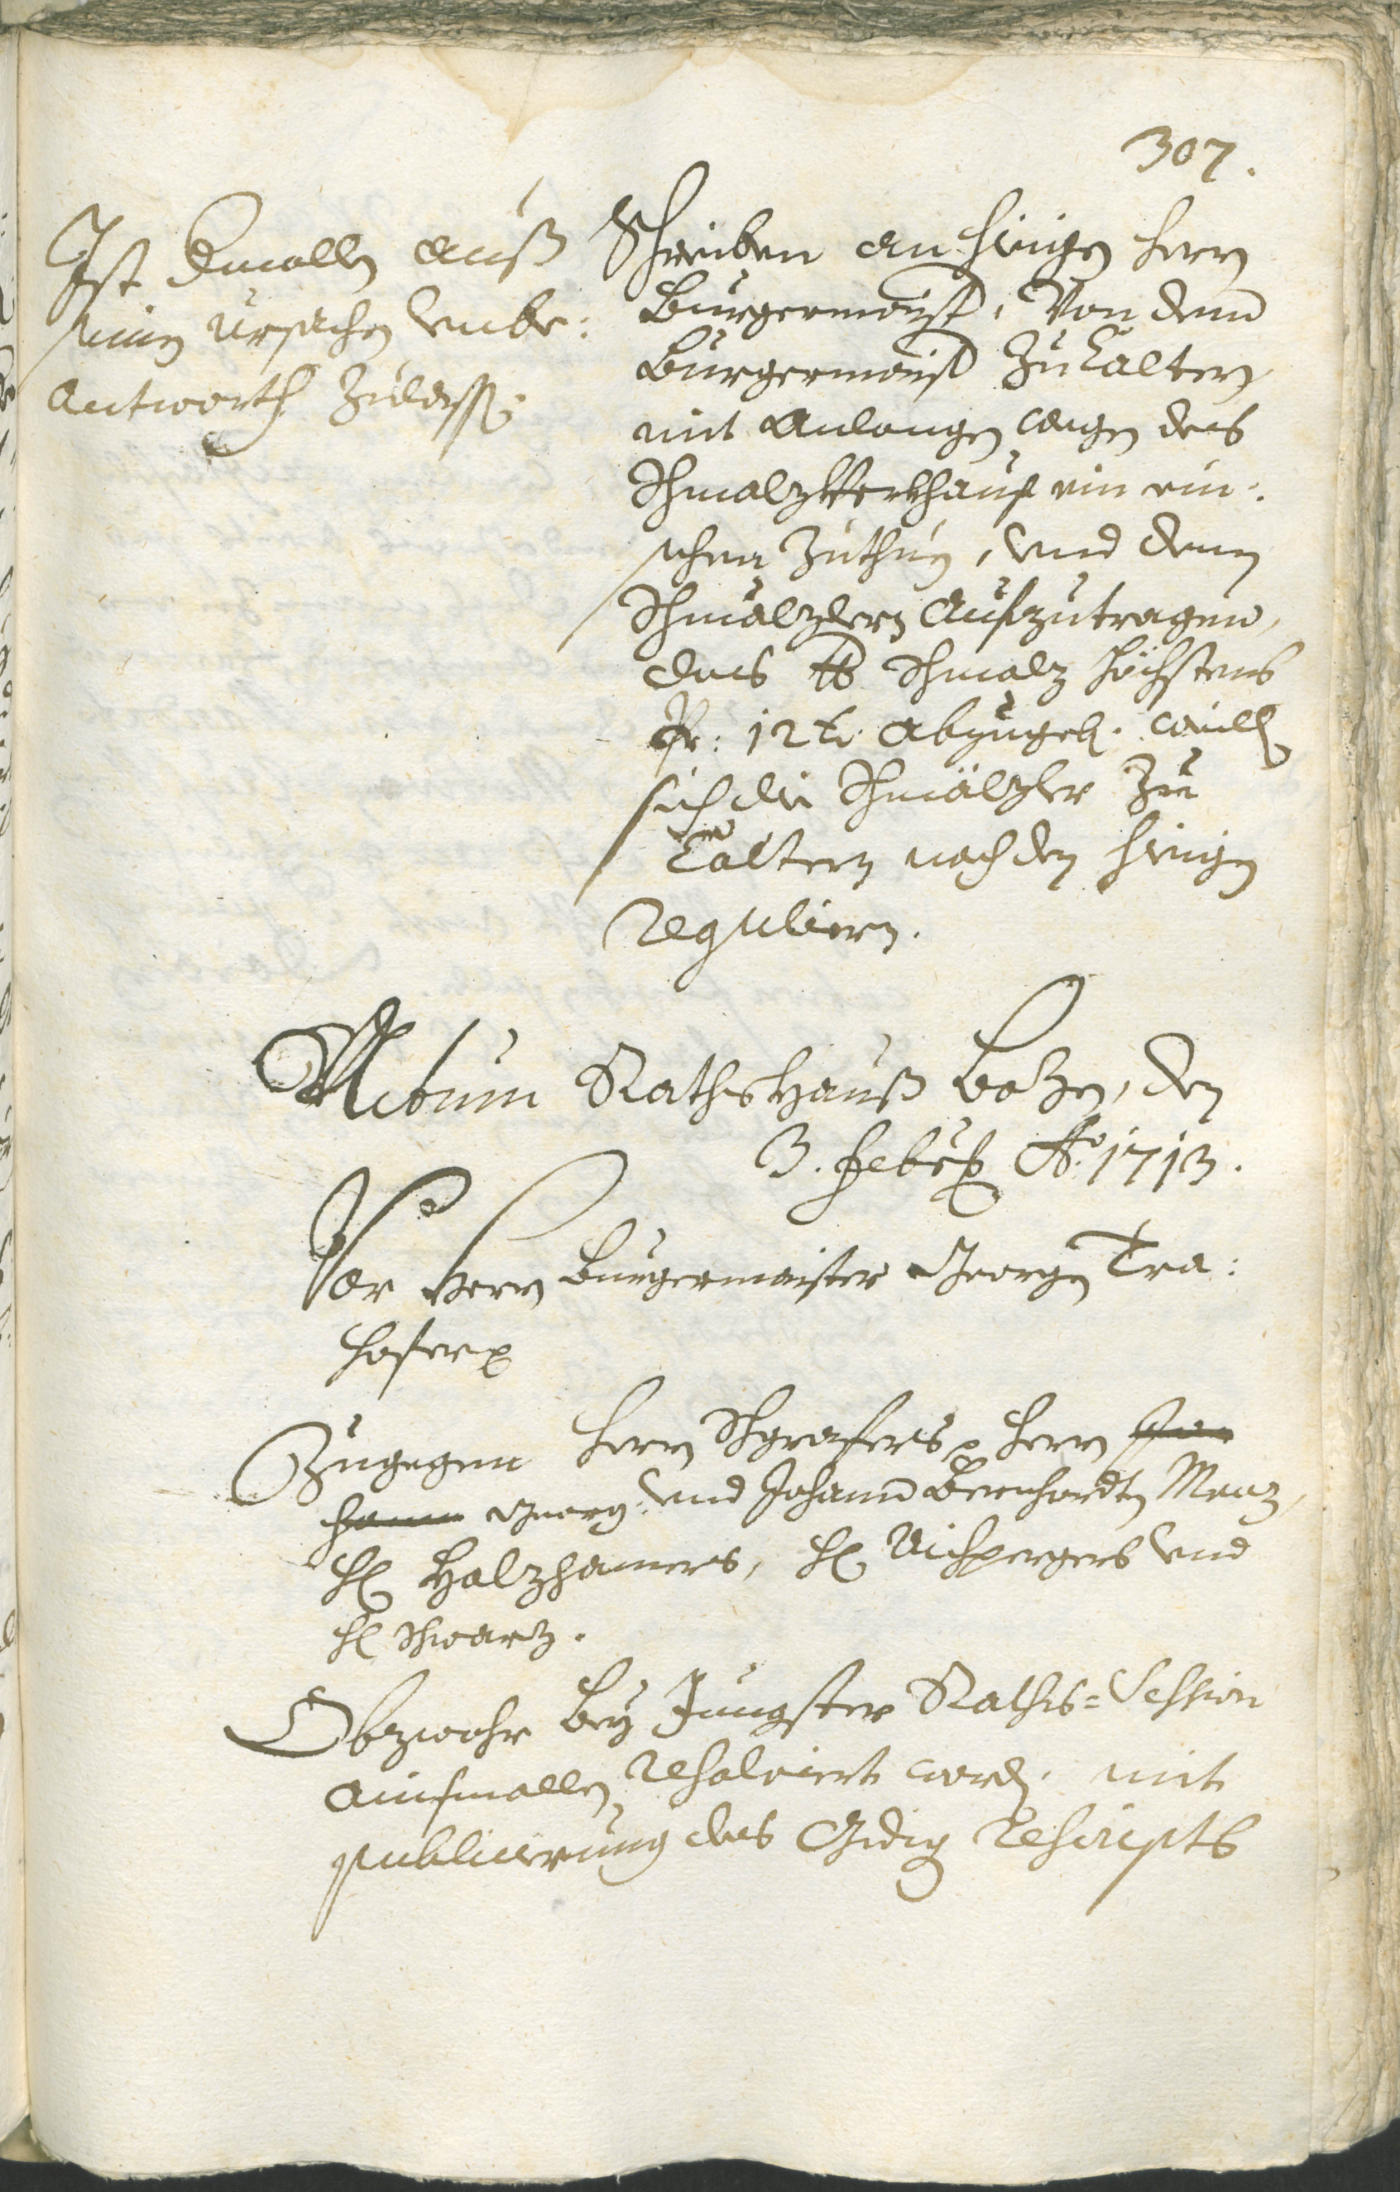 307.
Ist dermallen auß
seinen Ursachen vnbe:
antworth zulassen.
Schreiben an hieigen Herrn
Burgermaist. Von dem
Burgermaist zu Caltern
mit anlangen wegen des
Schmalz Verkhauf ein ein:
sehen zuthuen, vnd denen
Schmalzlern aufzutragen,
das ℔ Schmalz höchstens
Pr: 12 kr. abzugeb. weill
sich die Schmälzler zu
Caltern nach den hieigen
regulieren.
Actum Rathshauß Bozen, den
3. Febr: Ao. 1713.
Vor Herrn Burgermaister Georgen Tra:
hofer
Zugegen Herrn Schgrafers, Herrn Jo
hann Georg: vnd Johann Bernhardten Menz,
H. Holzhamers, H. Aichpergers vnd
H. Schwarz.
Obzwahr bey Jungster Raths=Session
ainsmallen resolviert word. mit
publicierung des Gdig rescripts